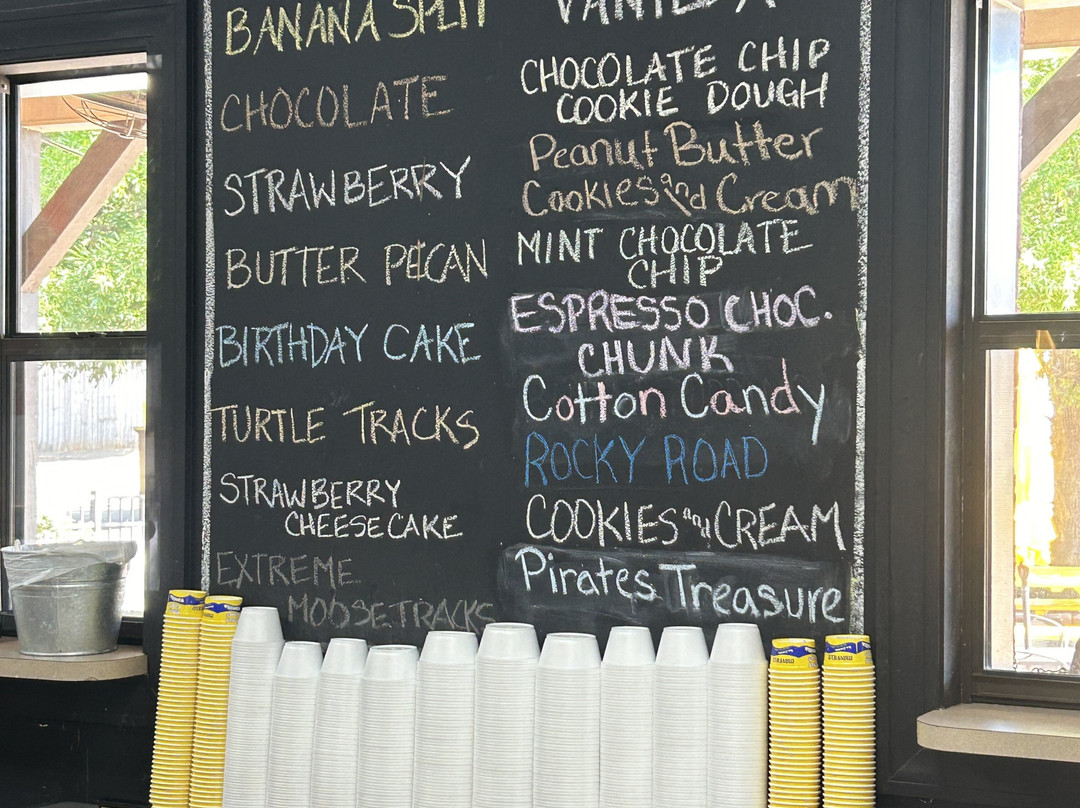 BANANA SPLIT
CHOCOLATE
STRAWBERRY
BUTTER PECAN
BIRTHDAY CAKE
TURTLE TRACKS
STRAWBERRY
CHEESECAKE
EXTREME
MOOSETRACKS
VANILLA
CHOCOLATE CHIP
COOKIE DOUGH
Peanut Butter
Cookies and Cream
MINT CHOCOLATE
CHIP
ESPRESSO CHOC.
CHUNK
Cotton Candy
ROCKY ROAD
COOKIES and CREAM
Pirates Treasure